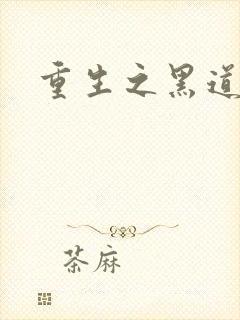 重生之黑道
茶麻